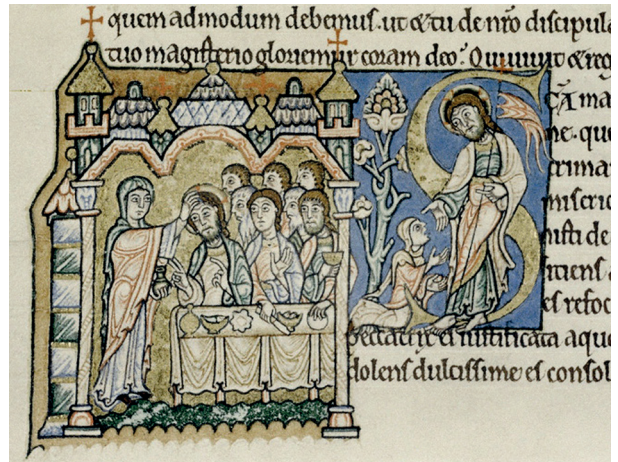 quem admodum debemus. ut & tu de nr̄o discipula
tuo magisterio gloriemur coram deo. Qui uiuit & reg
S
C̄A ma
ne que
crima
miseric
isti de
itiens
el refoc
peccatr̄ix el iustificata aqu
dolens dulcissime el consol